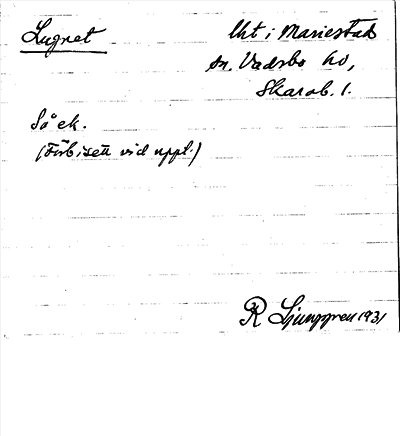 Lugnet
Uht i Mariestad
sn. Vadsbo hd,
Skarab. l.
Så ek.
(Förbisett vid uppt.)
R Ljunggren 1931